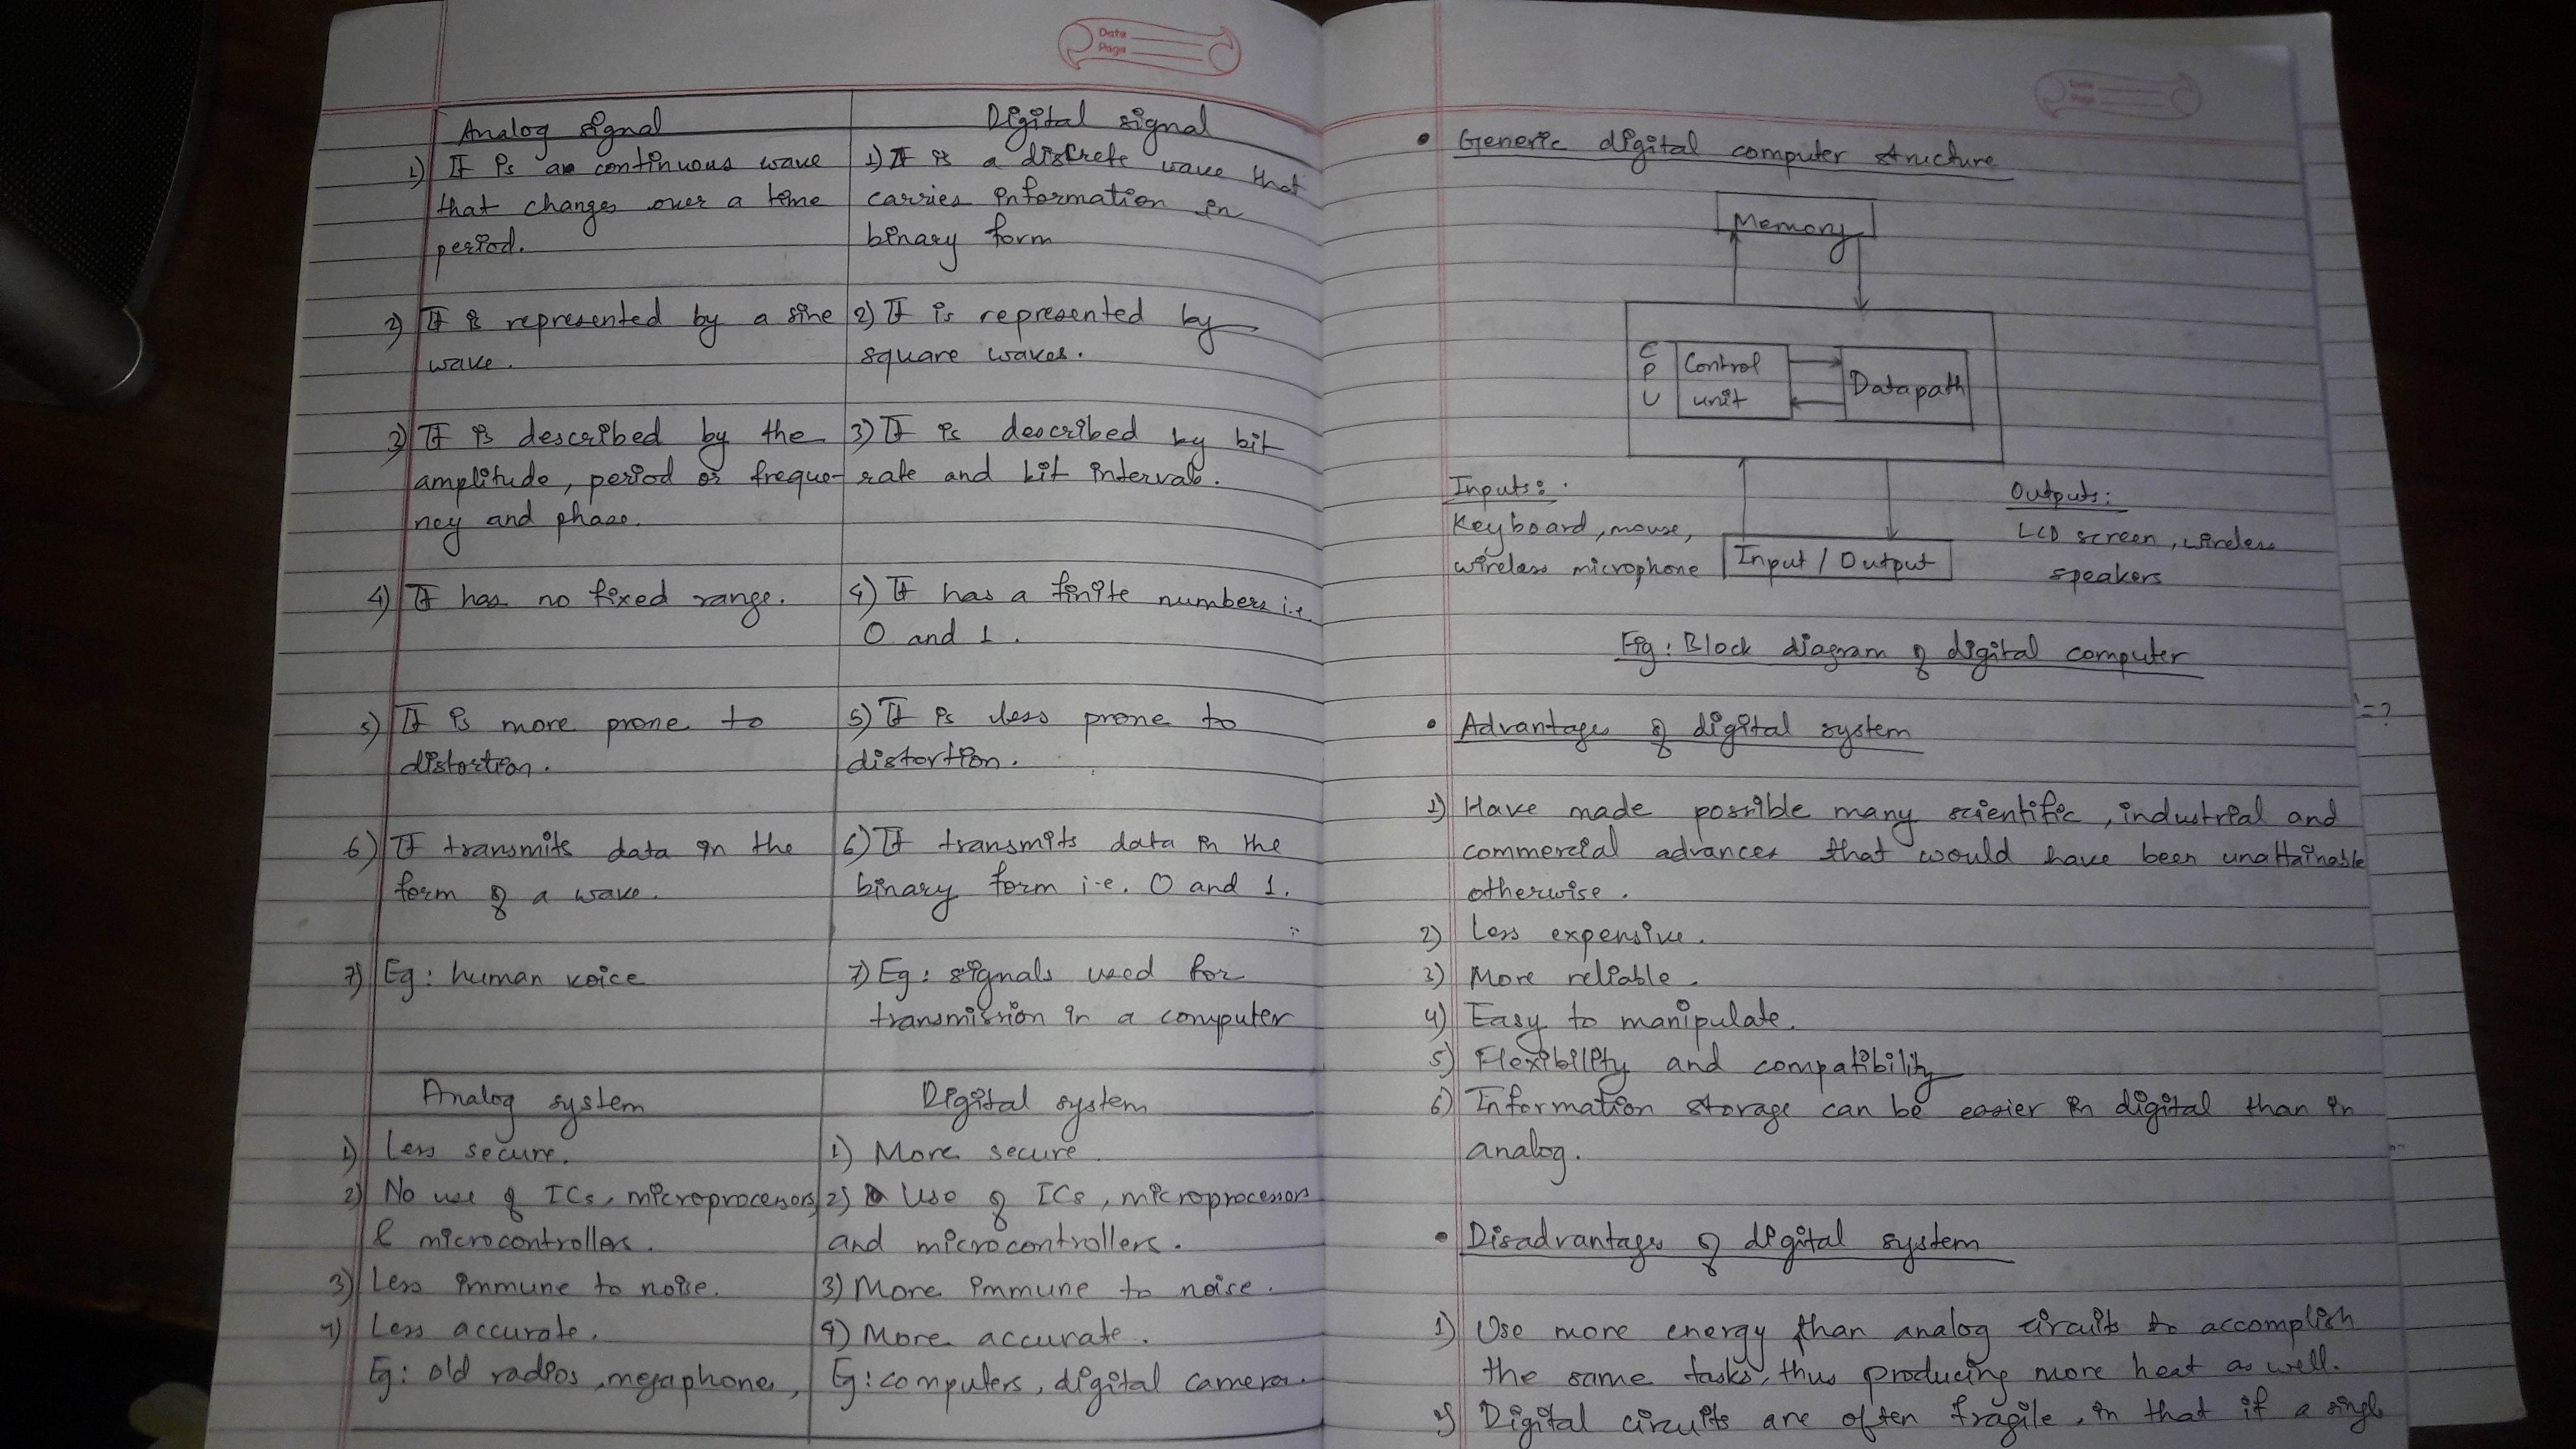 Date
Page
Analog signal | Digital signal
1) It is a continuous wave | 1) It is a discrete wave that
that changes over a time | carries information in
period. | binary form
2) It is represented by a sine | 2) It is represented by
wave. | square waves.
3) It is described by the | 3) It is described by bit
amplitude, period or freque- | rate and bit intervals.
ncy and phase.
4) It has no fixed range. | 4) It has a finite numbers i.e.
0 and 1.
5) It is more prone to | 5) It is less prone to
distortion. | distortion.
6) It transmits data in the | 6) It transmits data in the
form of a wave. | binary form i.e. 0 and 1.
7) Eg: human voice | 7) Eg: signals used for
transmission in a computer
Analog system | Digital system
1) Less secure. | 1) More secure.
2) No use of ICs, microprocessors | 2) Use of ICs, microprocessors
& microcontrollers. | and microcontrollers.
3) Less immune to noise. | 3) More immune to noise.
4) Less accurate. | 4) More accurate.
Eg: old radios, megaphone, | Eg: computers, digital camera.
Date
Page
• Generic digital computer structure
Memory
C P U
Control unit
Datapath
Inputs:
Keyboard, mouse,
wireless microphone
Input / Output
Outputs:
LCD screen, wireless
speakers
Fig: Block diagram of digital computer
• Advantages of digital system
1) Have made possible many scientific, industrial and
commercial advances that would have been unattainable
otherwise.
2) Less expensive.
3) More reliable.
4) Easy to manipulate.
5) Flexibility and compatibility
6) Information storage can be easier in digital than in
analog.
• Disadvantages of digital system
1) Use more energy than analog circuits to accomplish
the same tasks, thus producing more heat as well.
2) Digital circuits are often fragile, in that if a single